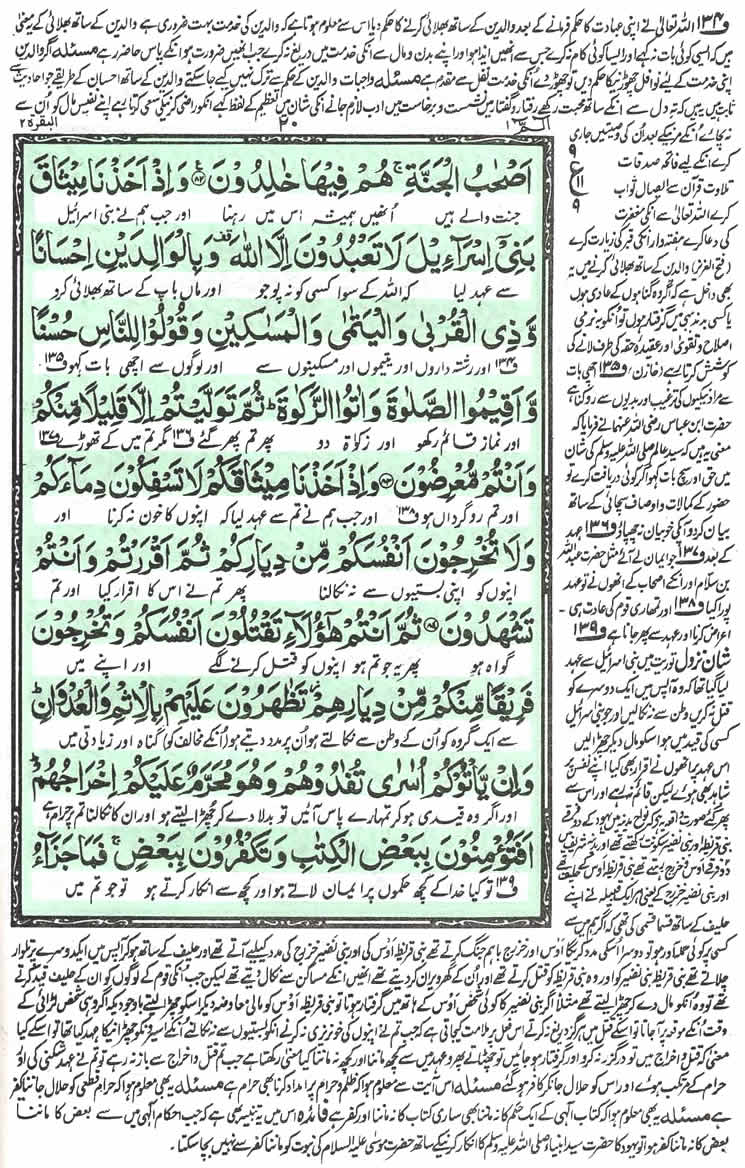 ف۱۳۴ اللہ تعالیٰ نے اپنی عبادت کا حکم فرمانے کے بعد والدین کے ساتھ بھلائی کرنے کا حکم دیا اس سے معلوم ہوتا ہے کہ والدین کی خدمت بہت ضروری ہے والدین کے ساتھ بھلائی کے یہ معنی
ہیں کہ ایسی کوئی بات نہ کہے اور ایسا کوئی کام نہ کرے جس سے انھیں ایذا ہو اور اپنے بدن و مال سے انکی خدمت میں دریغ نہ کرے جب انھیں ضرورت ہو انکے پاس حاضر رہے مسئلہ اگر والدین
اپنی خدمت کے لیے نوافل چھوڑنے کا حکم دیں تو چھوڑ دے انکی خدمت نفل سے مقدم ہے مسئلہ واجبات والدین کے حکم سے ترک نہیں کیے جا سکتے والدین کے ساتھ احسان کے طریقے جو احادیث سے
ثابت ہیں یہ ہیں کہ تہِ دل سے انکے ساتھ محبت رکھے رفتار و گفتار میں نشست و برخاست میں ادب لازم جانے انکی شان میں تعظیم کے لفظ کہے انکو راضی کرنے کی سعی کرتا رہے اپنے نفیس مال کو اُن سے
الٓمّٓ ۱
۲۰
البقرۃ ۲
اَصۡحٰبُ الۡجَنَّةِ ۚ هُمۡ فِيۡهَا خٰلِدُوۡنَ ﴿۸۲﴾ وَاِذۡ اَخَذۡنَا مِيۡثَاقَ
جنت والے ہیں اُنھیں ہمیشہ اس میں رہنا اور جب ہم نے بنی اسرائیل
بَنِىۡٓ اِسۡرَآءِيۡلَ لَا تَعۡبُدُوۡنَ اِلَّا اللّٰهَ وَبِالۡوَالِدَيۡنِ اِحۡسَانًا
سے عہد لیا کہ اللہ کے سوا کسی کو نہ پوجو اور ماں باپ کے ساتھ بھلائی کرو
وَّذِى الۡقُرۡبٰى وَالۡيَتٰمٰى وَالۡمَسٰكِيۡنِ وَقُوۡلُوۡا لِلنَّاسِ حُسۡنًا
ف۱۳۴ اور رشتہ داروں اور یتیموں اور مسکینوں سے اور لوگوں سے اچھی بات کہو ف۱۳۵
وَّاَقِيۡمُوا الصَّلٰوةَ وَاٰتُوا الزَّكٰوةَ ؕ ثُمَّ تَوَلَّيۡتُمۡ اِلَّا قَلِيۡلًا مِّنۡكُمۡ
اور نماز قائم رکھو اور زکوٰۃ دو پھر تم پھر گئے ف۱۳۶ مگر تم میں کے تھوڑے ف۱۳۷
وَاَنۡتُمۡ مُّعۡرِضُوۡنَ ﴿۸۳﴾ وَاِذۡ اَخَذۡنَا مِيۡثَاقَكُمۡ لَا تَسۡفِكُوۡنَ دِمَآءَكُمۡ
اور تم روگرداں ہو ف۱۳۸ اور جب ہم نے تم سے عہد لیا کہ اپنوں کا خون نہ کرنا اور
وَلَا تُخۡرِجُوۡنَ اَنۡفُسَكُمۡ مِّنۡ دِيَارِكُمۡ ثُمَّ اَقۡرَرۡتُمۡ وَاَنۡتُمۡ
اپنوں کو اپنی بستیوں سے نہ نکالنا پھر تم نے اس کا اقرار کیا اور تم
تَشۡهَدُوۡنَ ﴿۸۴﴾ ثُمَّ اَنۡتُمۡ هٰٓؤُلَآءِ تَقۡتُلُوۡنَ اَنۡفُسَكُمۡ وَتُخۡرِجُوۡنَ
گواہ ہو پھر یہ جو تم ہو اپنوں کو قتل کرنے لگے اور اپنے میں
فَرِيۡقًا مِّنۡكُمۡ مِّنۡ دِيَارِهِمۡ تَظٰهَرُوۡنَ عَلَيۡهِمۡ بِالۡاِثۡمِ وَالۡعُدۡوَانِ ؕ
سے ایک گروہ کو اُن کے وطن سے نکالتے ہو اُن پر مدد دیتے ہو (اُنکے مخالف کو) گناہ اور زیادتی میں
وَاِنۡ يَّاۡتُوۡكُمۡ اُسٰرٰى تُفٰدُوۡهُمۡ وَهُوَ مُحَرَّمٌ عَلَيۡكُمۡ اِخۡرَاجُهُمۡ ؕ
اور اگر وہ قیدی ہو کر تمہارے پاس آئیں تو بدلا دے کر چھڑا لیتے ہو اور ان کا نکالنا تم پر حرام ہے
اَفَتُؤۡمِنُوۡنَ بِبَعۡضِ الۡكِتٰبِ وَتَكۡفُرُوۡنَ بِبَعۡضٍ ۚ فَمَا جَزَآءُ
ف۱۳۹ تو کیا خدا کے کچھ حکموں پر ایمان لاتے ہو اور کچھ سے انکار کرتے ہو تو جو تم میں
نہ بچائے اُنکے مرنے کے بعد اُن کی وصیتیں جاری
کرے انکے لیے فاتحہ صدقات
تلاوت قرآن سے ایصال ثواب
کرے اللہ تعالیٰ سے انکی مغفرت
کی دعا کرے ہفتہ وار انکی قبر کی زیارت کرے
(فتح العزیز) والدین کے ساتھ بھلائی کرنے میں یہ
بھی داخل ہے کہ اگر وہ گناہوں کے عادی ہوں
یا کسی بد مذہبی میں گرفتار ہوں تو انکو بہ نرمی
اصلاح و تقویٰ اور عقیدہ حقہ کی طرف لانے کی
کوشش کرتا رہے (خازن) ف۱۳۵ اچھی بات
سے مراد نیکیوں کی ترغیب اور بدیوں سے روکنا ہے
حضرت ابن عباس رضی اللہ عنہما نے فرمایا کہ
معنی یہ ہیں کہ سید عالم صلی اللہ علیہ وسلم کی شان
میں حق اور سچ بات کہو اگر کوئی دریافت کرے تو
حضور کے کمالات و اوصاف سچائی کے ساتھ
بیان کردو آپکی خوبیاں نہ چھپاؤ ف۱۳۶ عہد
کے بعد ف۱۳۷ جو ایمان لے آئے مثل حضرت عبداللہ
بن سلام اور انکے اصحاب کے انھوں نے تو عہد
پورا کیا ف۱۳۸ اور تمھاری قوم کی عادت ہی
اعراض کرنا اور عہد سے پھر جانا ہے ف۱۳۹
شان نزول توریت میں بنی اسرائیل سے عہد
لیا گیا تھا کہ وہ آپس میں ایک دوسرے کو
قتل نہ کریں وطن سے نہ نکالیں اور جو بنی اسرائیل
کسی کی قید میں ہو اسکو مال دیکر چھڑا لیں
اس عہد پر انھوں نے اقرار بھی کیا اپنے نفس پر
شاہد بھی ہوئے لیکن قائم نہ رہے اور اس سے
پھر گئے صورت واقعہ یہ ہے کہ نواح مدینہ میں یہود کے دو فرقے
بنی قریظہ اور بنی نضیر سکونت رکھتے تھے اور مدینہ شریف میں
دو فرقے اوس و خزرج رہتے تھے بنی قریظہ اوس کے حلیف تھے
اور بنی نضیر خزرج کے یعنی ہر ایک قبیلہ نے اپنے
حلیف کے ساتھ قسما قسمی کی تھی کہ اگر ہم میں سے
کسی پر کوئی حملہ آور ہو تو دوسرا اسکی مدد کرے گا اوس اور خزرج باہم جنگ کرتے تھے بنی قریظہ اوس کی اور بنی نضیر خزرج کی مدد کیلیے آتے تھے اور حلیف کے ساتھ ہو کر آپس میں ایک دوسرے پر تلوار
چلاتے تھے بنی قریظہ بنی نضیر کو اور وہ بنی قریظہ کو قتل کرتے تھے اور اُن کے گھر ویران کر دیتے تھے انھیں انکے مساکن سے نکال دیتے تھے لیکن جب انکی قوم کے لوگوں کو ان کے حلیف قید کرتے
تھے تو وہ انکو مال دے کر چھڑا لیتے تھے مثلاً اگر بنی نضیر کا کوئی شخص اوس کے ہاتھ میں گرفتار ہوتا تو بنی قریظہ اوس کو مالی معاوضہ دیکر اسکو چھڑا لیتے باوجودیکہ اگر وہی شخص لڑائی کے
وقت انکے موقعہ پر آجاتا تو اسکے قتل میں ہرگز دریغ نہ کرتے اس فعل پر ملامت کی جاتی ہے کہ جب تم نے اپنوں کی خونریزی نہ کرنے انکو بستیوں سے نہ نکالنے اُنکے اسیروں کو چھڑانے کا عہد کیا تھا تو اسکے کیا
معنی کہ قتل و اخراج میں تو درگزر نہ کرو اور گرفتار ہو جائیں تو چھڑاتے پھرو عہد میں سے کچھ ماننا اور کچھ نہ ماننا کیا معنی رکھتا ہے جب تم قتل و اخراج سے باز نہ رہے تو تم نے عہد شکنی کی اور
حرام کے مرتکب ہوئے اور اس کو حلال جان کر کافر ہو گئے مسئلہ اس آیت سے معلوم ہوا کہ ظلم و حرام پر امداد کرنا بھی حرام ہے مسئلہ یہ بھی معلوم ہوا کہ حرام قطعی کو حلال جاننا کفر
ہے مسئلہ یہ بھی معلوم ہوا کہ کتاب الٰہی کے ایک حکم کا نہ ماننا بھی ساری کتاب کا نہ ماننا اور کفر ہے فائدہ اس میں یہ تنبیہ بھی ہے کہ جب احکام الٰہی میں سے بعض کا ماننا
بعض کا نہ ماننا کفر ہوا تو یہود کا حضرت سید انبیاء صلی اللہ علیہ وسلم کا انکار کرنے کے ساتھ حضرت موسیٰ علیہ السلام کی نبوت کو ماننا کفر سے نہیں بچا سکتا۔